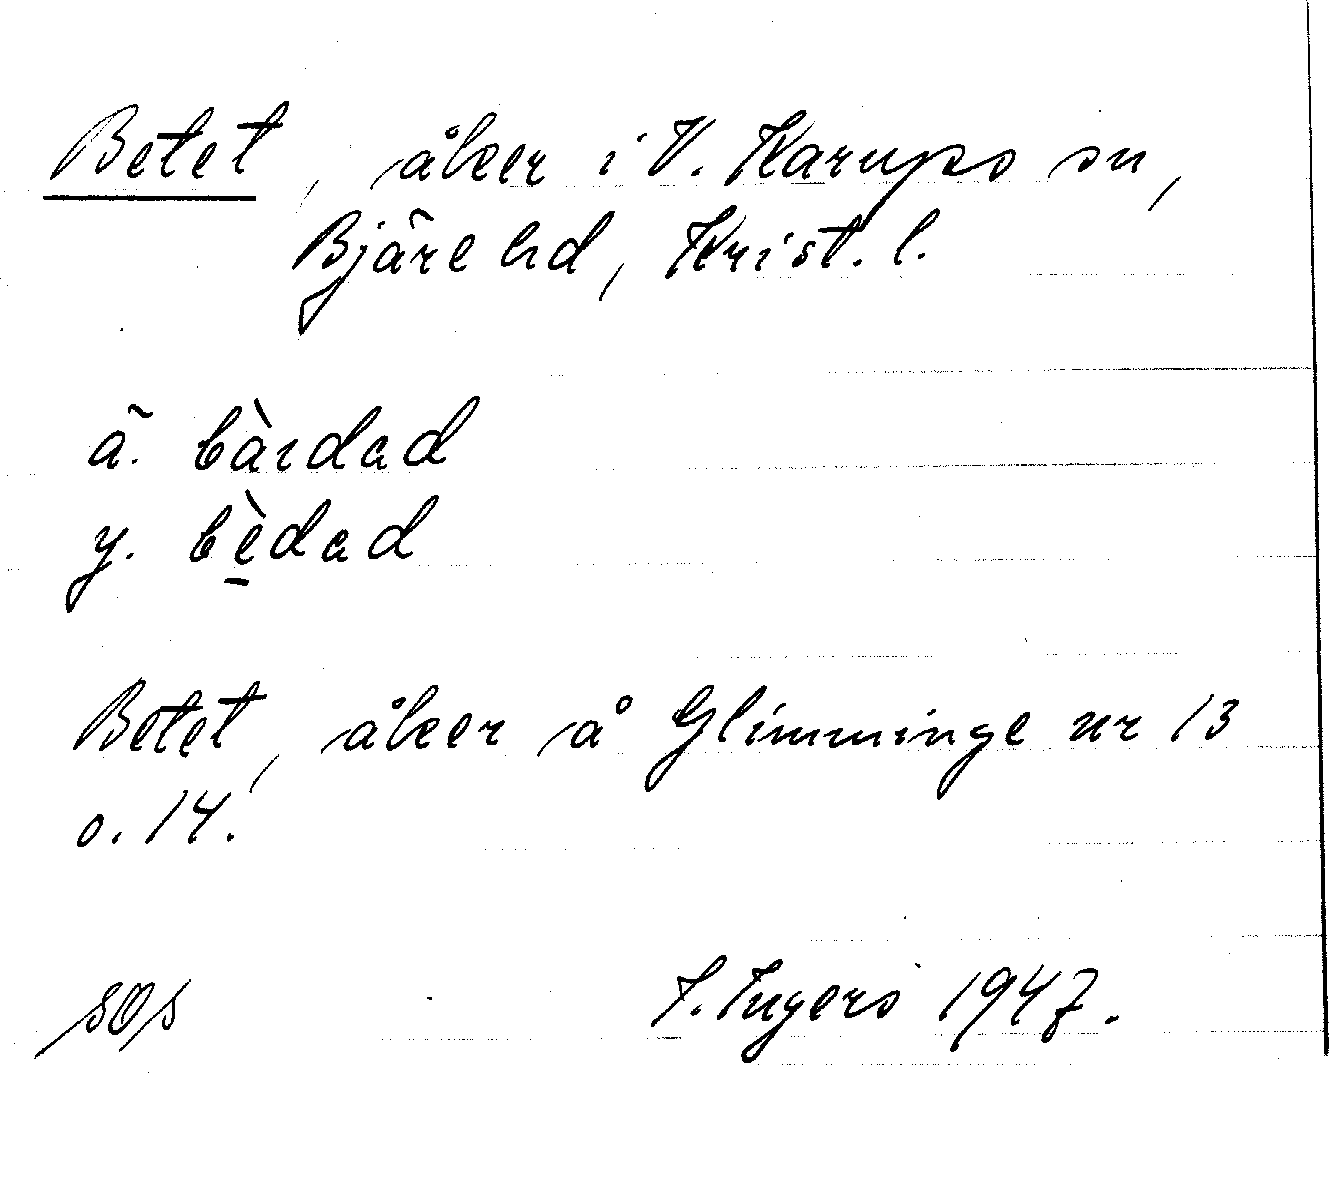 Betet, åker i V. Karups sn,
Bjäre hd, Krist. l.
ä. bàɪdad
y. bè̱dad
Betet, åker å Glimminge nr 13
o. 14.
SOS
I. Ingers 1947.